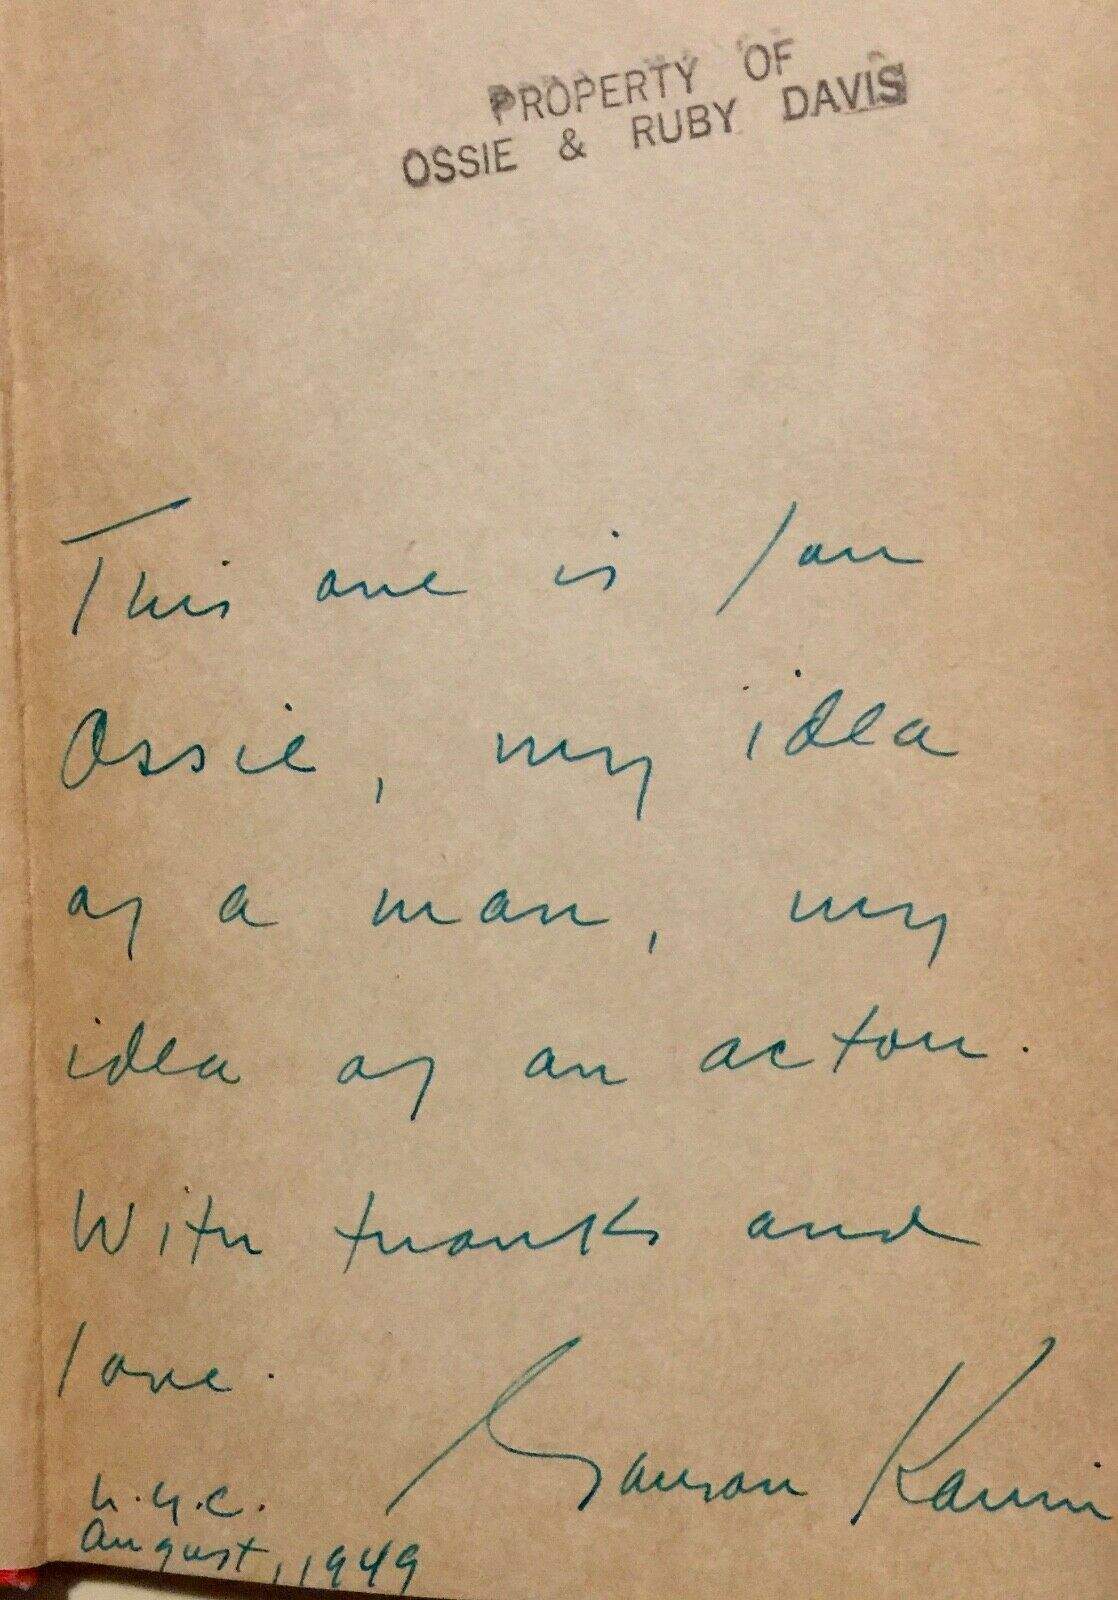 PROPERTY OF
OSSIE & RUBY DAVIS
This one is for
Ossie, my idea
of a man, my
idea of an actor.
With thanks and
love.
Garson Kanin
N.Y.C.
August, 1949